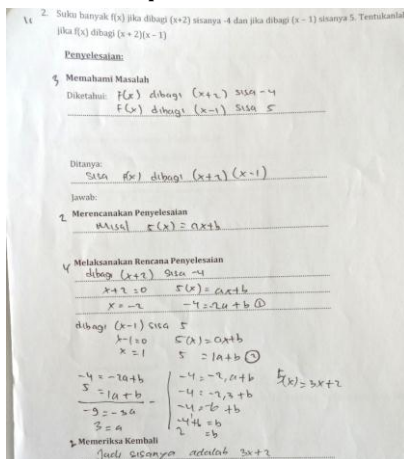 11
2. Suku banyak f(x) jika dibagi (x+2) sisanya -4 dan jika dibagi (x – 1) sisanya 5. Tentukanlah
jika f(x) dibagi (x + 2)(x – 1)
Penyelesaian:
3 Memahami Masalah
Diketahui: F(x) dibagi (x+2) sisa -4
F(x) dibagi (x-1) sisa 5
Ditanya:
Sisa F(x) dibagi (x+2) (x-1)
Jawab:
2 Merencanakan Penyelesaian
Misal S(x) = ax+b
4 Melaksanakan Rencana Penyelesaian
dibagi (x+2) sisa -4
x+2=0 S(x) = ax+b
x = -2 -4 = -2a + b ①
dibagi (x-1) sisa 5
x-1=0 S(x) = ax+b
x = 1 5 = 1a+b ②
-4 = -2a+b
5 = 1a+b
-9 = -3a
3 = a
-4 = -2.a+b
-4 = -2.3+b
-4 = -6 +b
-4+6 = b
2 = b
S(x) = 3x+2
2 Memeriksa Kembali
Jadi sisanya adalah 3x+2